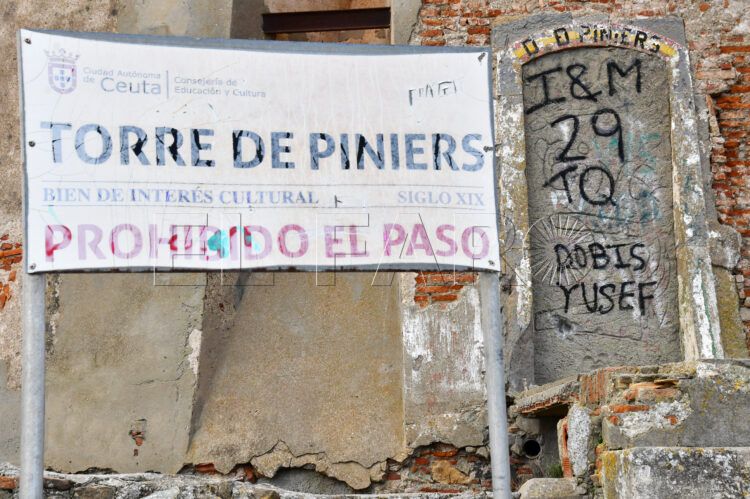 Ciudad Autónoma
de Ceuta
Consejería de
Educación y Cultura
TORRE DE PINIERS
BIEN DE INTERÉS CULTURAL
SIGLO XIX
PROHIBIDO EL PASO
EL FARO
PINIERS
I&M
29
TQ
DOBIS
YUSEF